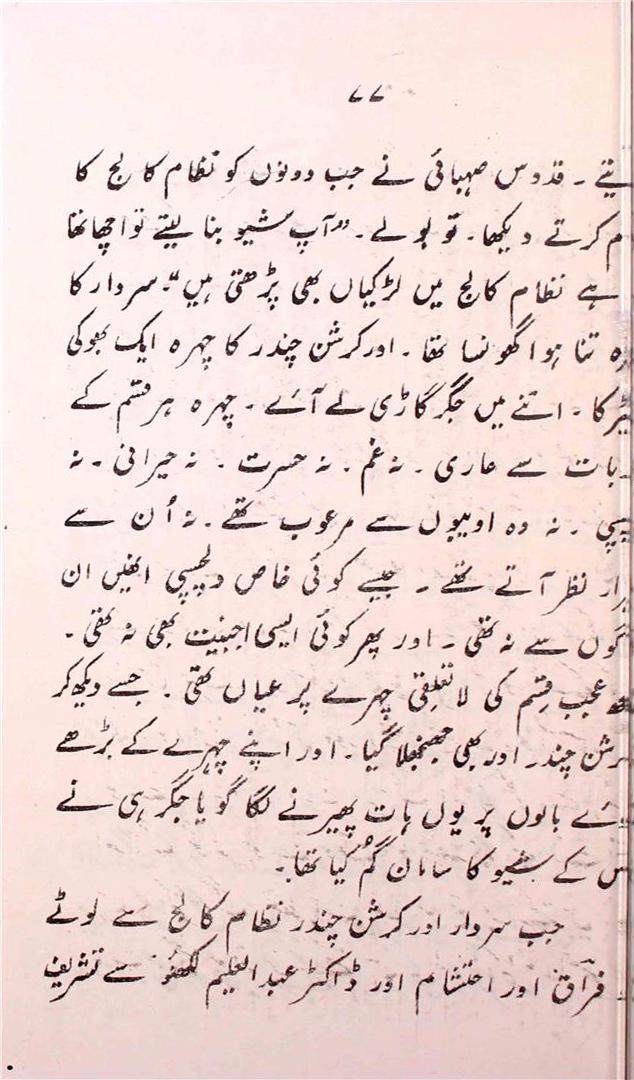 ۷۷
قدوس صہبائی نے جب دونوں کو نظام کالج کا
کرتے دیکھا۔ تو بولے۔ "آپ شیو بنا لیتے تو اچھا تھا
ہے نظام کالج میں لڑکیاں بھی پڑھتی ہیں"۔ سردار کا
تنا ہوا گھونسا تھا۔ اور کرشن چندر کا چہرہ ایک بھوکی
کا۔ اتنے میں جگر گاڑی لے آئے۔ چہرہ ہر قسم کے
بات سے عاری۔ نہ غم۔ نہ حسرت۔ نہ حیرانی۔ نہ
۔ نہ وہ ادیبوں سے مرعوب تھے۔ نہ اُن سے
نظر آتے تھے۔ جیسے کوئی خاص دلچسپی انھیں ان
گوں سے نہ تھی۔ اور پھر کوئی ایسی اجنبیت بھی نہ تھی۔
عجب قسم کی لا تعلقی چہرے پر عیاں تھی۔ جسے دیکھ کر
رشن چندر اور بھی جھنجھلا گیا۔ اور اپنے چہرے کے بڑھے
بالوں پر یوں ہات پھیرنے لگا گویا جگر ہی نے
س کے شیو کا سامان گُم کیا تھا۔
جب سردار اور کرشن چندر نظام کالج سے لوٹے
فراق اور احتشام اور ڈاکٹر عبدالعلیم لکھنؤ سے تشریف